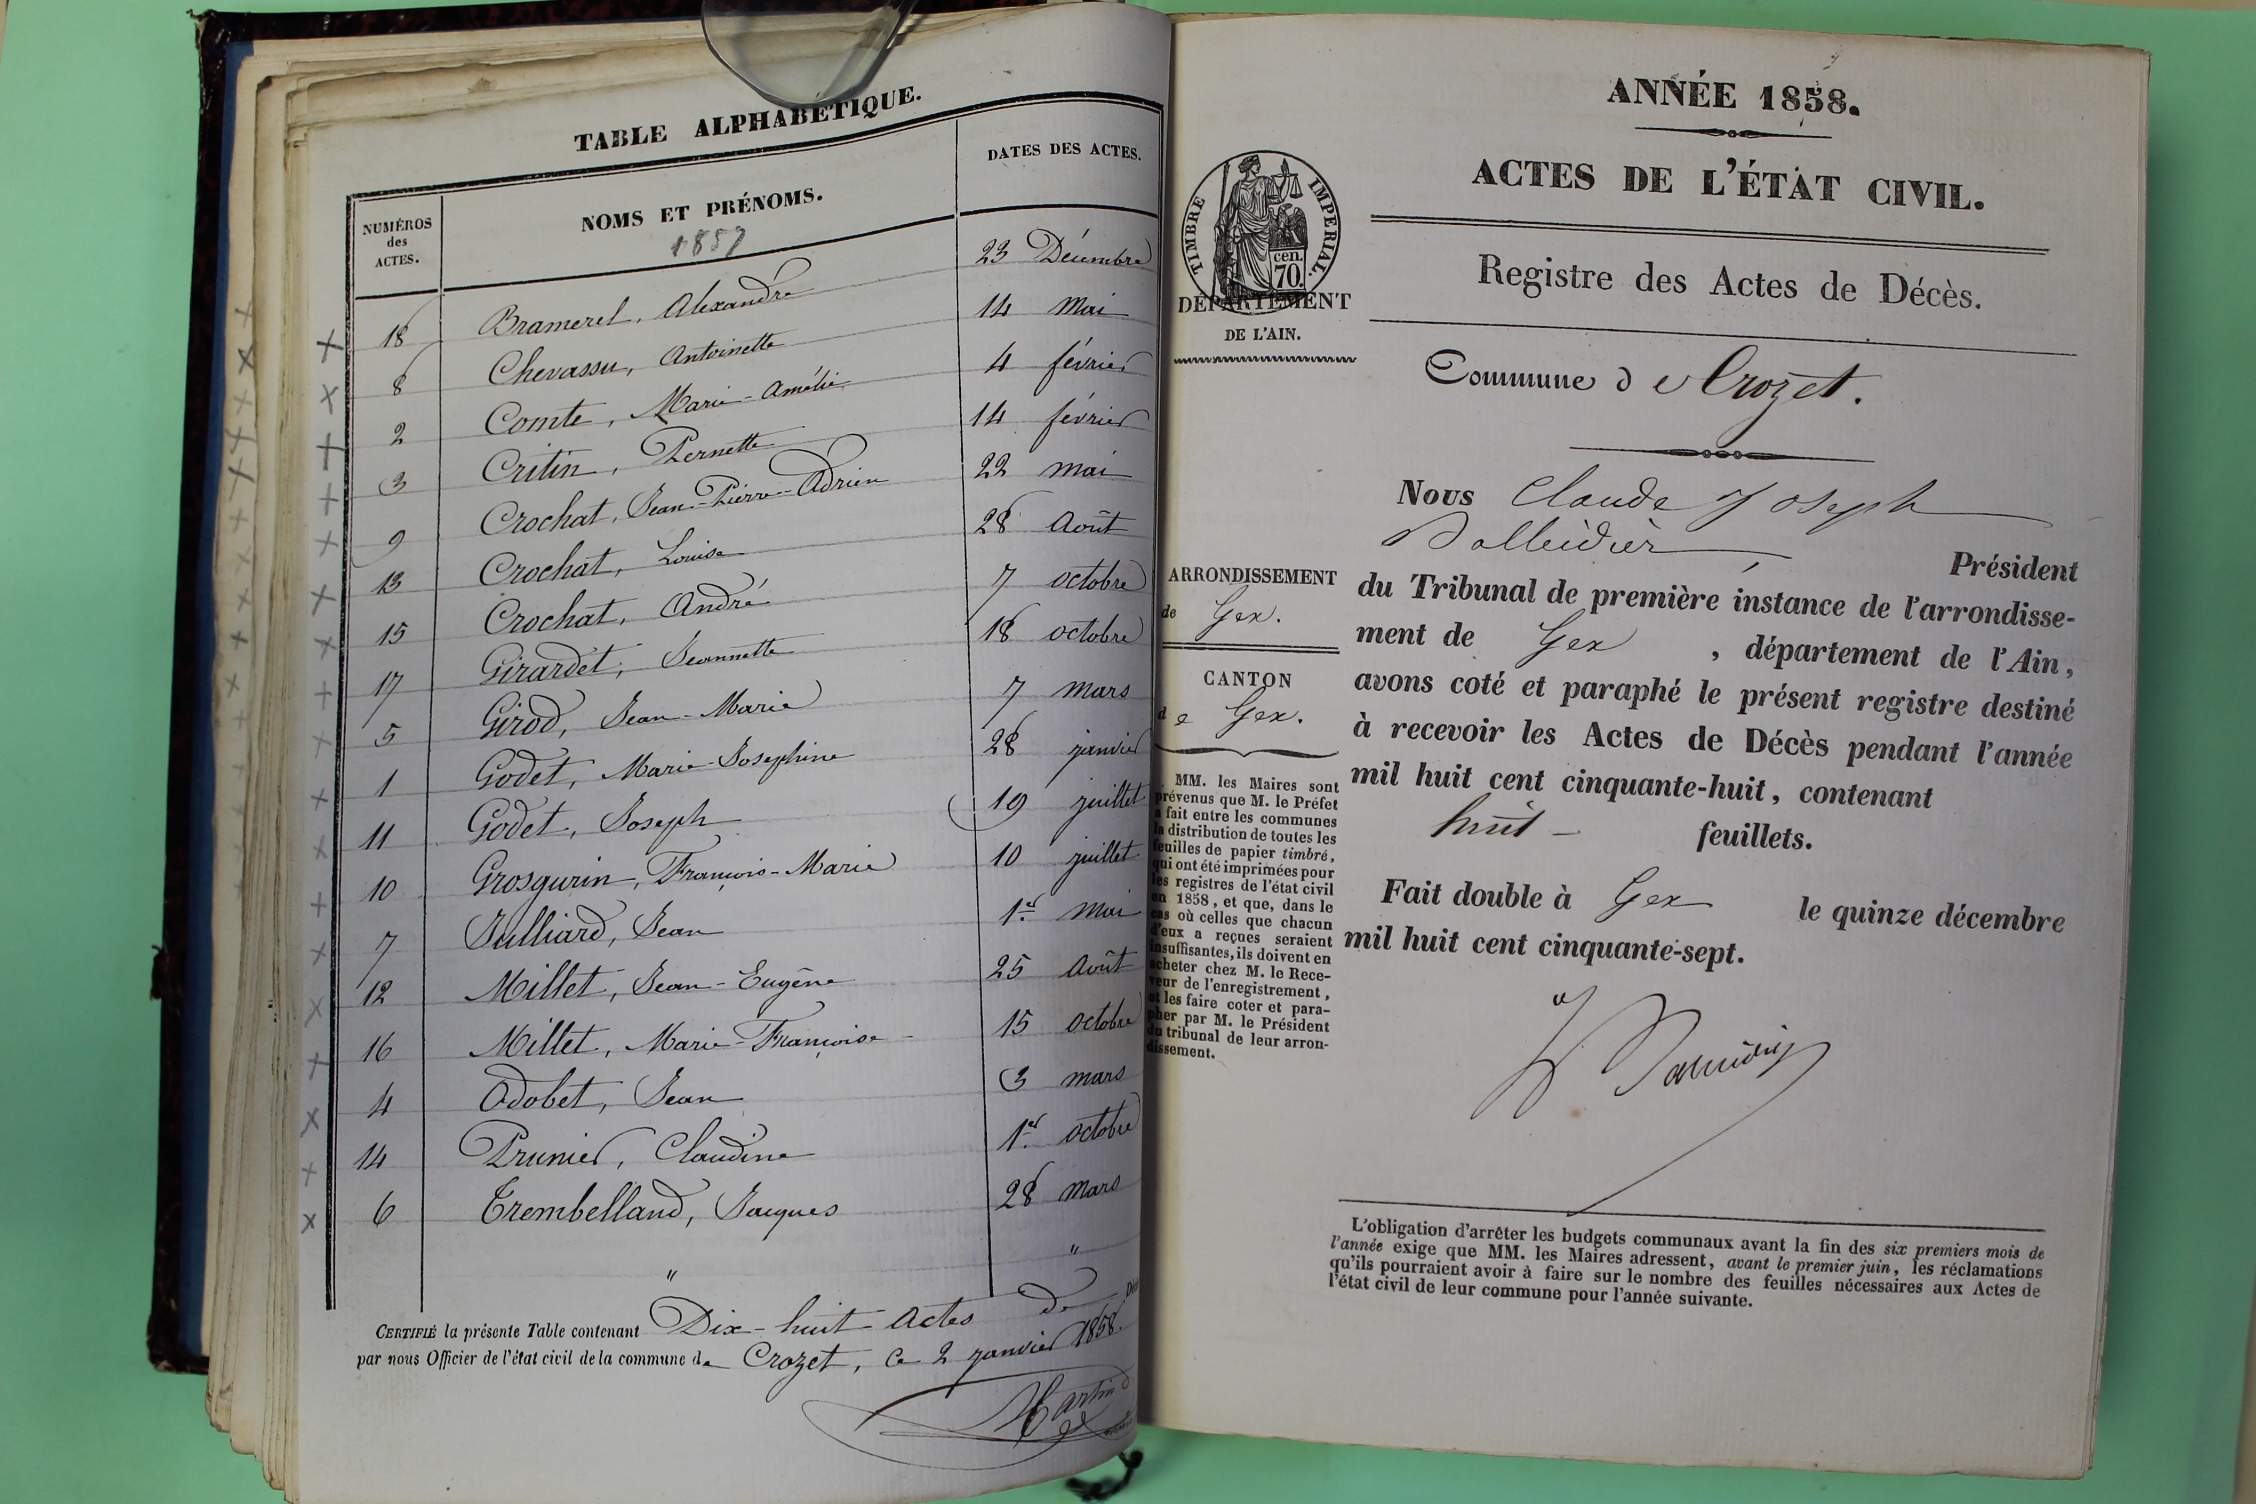 TABLE ALPHABÉTIQUE.
NUMÉROS des ACTES. NOMS ET PRÉNOMS. DATES DES ACTES.
1857
18 Bramerel, Alexandre 23 Décembre
8 Chevassu, Antoinette 14 Mai
2 Comte, Marie-Amélie 4 février
3 Critin, Pernette 14 février
9 Crochat, Jean-Pierre-Adrien 22 mai
13 Crochat, Louise 28 Août
15 Crochat, André 7 octobre
17 Girardet, Jeannette 18 octobre
5 Girod, Jean-Marie 7 mars
1 Godet, Marie-Josephine 28 janvier
11 Godet, Joseph 19 juillet
10 Grosgurin, François-Marie 10 juillet
7 Julliard, Jean 1er Mai
12 Millet, Jean-Eugène 25 Août
16 Millet, Marie-Françoise 15 octobre
4 Odobet, Jean 3 mars
14 Prunier, Claudine 1er octobre
6 Trembelland, Jacques 28 mars
" "
CERTIFIÉ la présente Table contenant Dix-huit Actes de Déc
par nous Officier de l'état civil de la commune de Crozet, ce 2 janvier 1858.
Martin
ANNÉE 1858.
ACTES DE L'ÉTAT CIVIL.
TIMBRE IMPERIAL.
cen.
70.
DÉPARTEMENT
DE L'AIN.
Registre des Actes de Décès.
Commune de Crozet.
Nous Claude Joseph
Président
ARRONDISSEMENT
de Gex.
CANTON
de Gex.
MM. les Maires sont
prévenus que M. le Préfet
a fait entre les communes
la distribution de toutes les
feuilles de papier timbré,
qui ont été imprimées pour
les registres de l'état civil
en 1858, et que, dans le
cas où celles que chacun
d'eux a reçues seraient
insuffisantes, ils doivent en
acheter chez M. le Rece-
veur de l'enregistrement,
et les faire coter et para-
pher par M. le Président
du tribunal de leur arron-
dissement.
du Tribunal de première instance de l'arrondisse-
ment de Gex, département de l'Ain,
avons coté et paraphé le présent registre destiné
à recevoir les Actes de Décès pendant l'année
mil huit cent cinquante-huit, contenant
huit - feuillets.
Fait double à Gex le quinze décembre
mil huit cent cinquante-sept.
L'obligation d'arrêter les budgets communaux avant la fin des six premiers mois de
l'année exige que MM. les Maires adressent, avant le premier juin, les réclamations
qu'ils pourraient avoir à faire sur le nombre des feuilles nécessaires aux Actes de
l'état civil de leur commune pour l'année suivante.